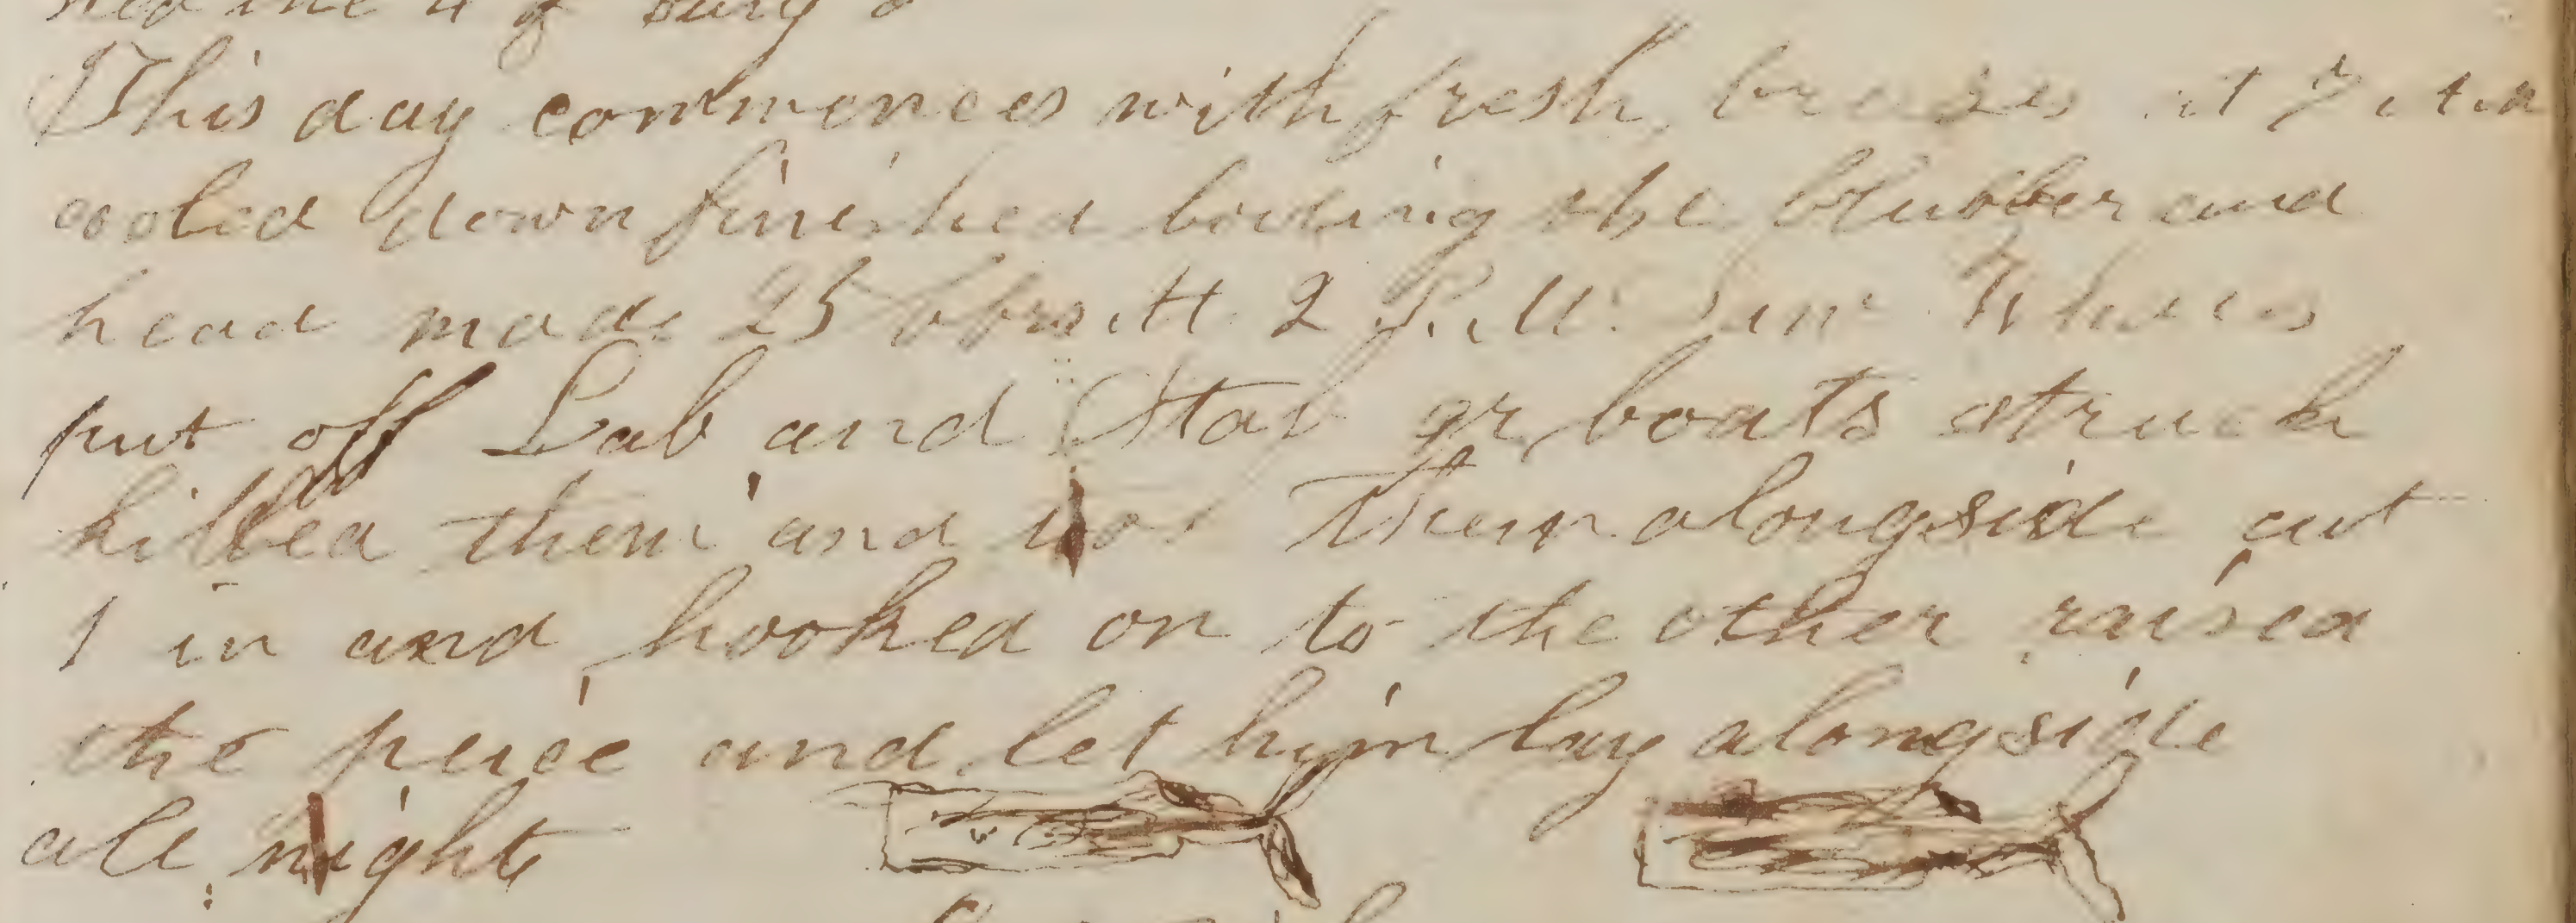 This day commences with fresh breezes at 7 A.M
cooled down finished boiling the blubber and
head made 25 bbrs At 2 P.M. Saw Whales
put off Lab and Star qr boats struck
killed them and took them alongside cut
1 in and hooked on to the other raised
the peice and let him lay alongside
all night